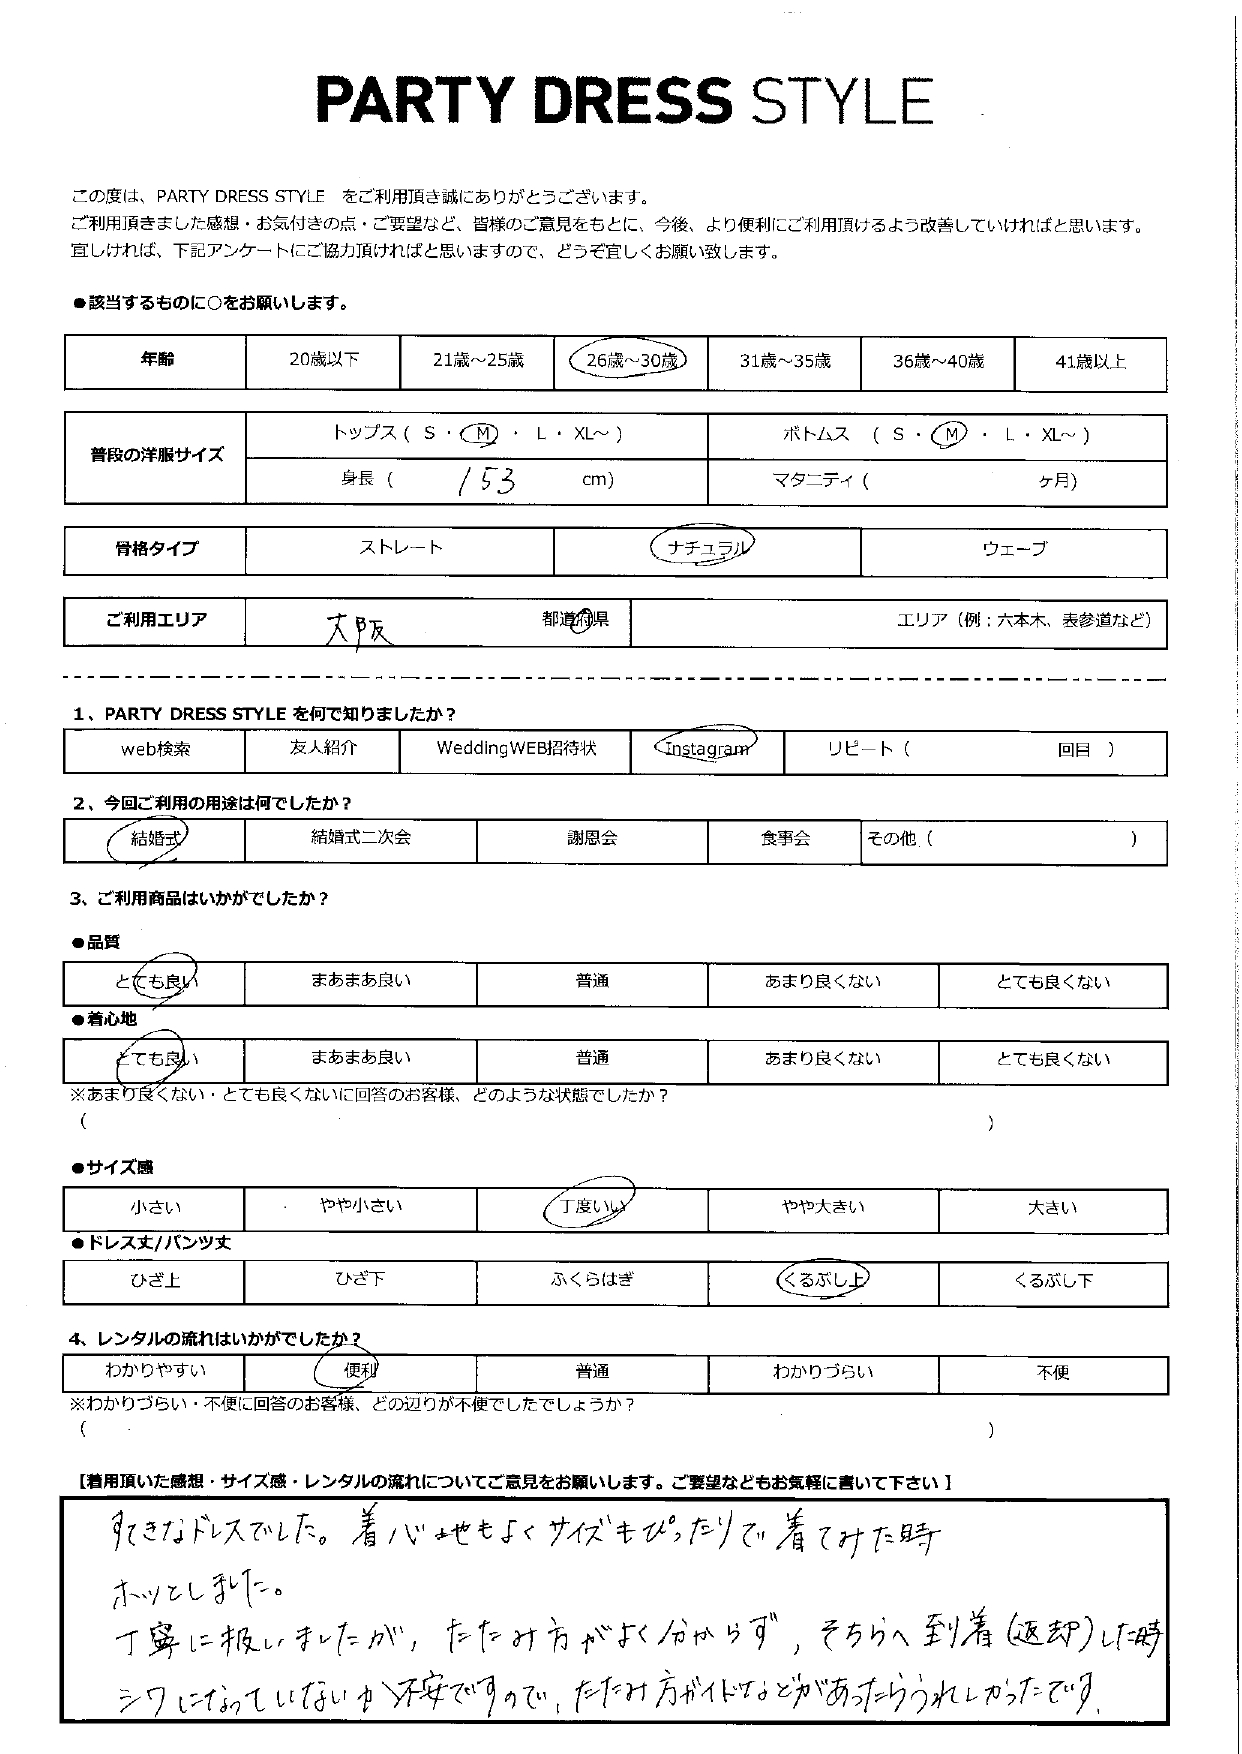 PARTY DRESS STYLE
この度は、PARTY DRESS STYLE をご利用頂き誠にありがとうございます。
ご利用頂きました感想・お気付きの点・ご要望など、皆様のご意見をもとに、今後、より便利にご利用頂けるよう改善していければと思います。
宜しければ、下記アンケートにご協力頂ければと思いますので、どうぞ宜しくお願い致します。
●該当するものに○をお願いします。
年齢 20歳以下 21歳～25歳 26歳～30歳 31歳～35歳 36歳～40歳 41歳以上
普段の洋服サイズ
トップス ( S ・ M ・ L ・ XL～ ) ボトムス ( S ・ M ・ L ・ XL～ )
身長 ( 153 cm) マタニティ ( ヶ月)
骨格タイプ ストレート ナチュラル ウェーブ
ご利用エリア 大阪 都道府県 エリア（例：六本木、表参道など）
1、PARTY DRESS STYLE を何で知りましたか？
web検索 友人紹介 WeddingWEB招待状 Instagram リピート ( 回目 )
2、今回ご利用の用途は何でしたか？
結婚式 結婚式二次会 謝恩会 食事会 その他 ( )
3、ご利用商品はいかがでしたか？
●品質
とても良い まあまあ良い 普通 あまり良くない とても良くない
●着心地
とても良い まあまあ良い 普通 あまり良くない とても良くない
※あまり良くない・とても良くないに回答のお客様、どのような状態でしたか？
( )
●サイズ感
小さい やや小さい 丁度いい やや大きい 大きい
●ドレス丈/パンツ丈
ひざ上 ひざ下 ふくらはぎ くるぶし上 くるぶし下
4、レンタルの流れはいかがでしたか？
わかりやすい 便利 普通 わかりづらい 不便
※わかりづらい・不便に回答のお客様、どの辺りが不便でしたでしょうか？
( )
【着用頂いた感想・サイズ感・レンタルの流れについてご意見をお願いします。ご要望などもお気軽に書いて下さい 】
すてきなドレスでした。着心地もよくサイズもぴったりで着てみた時
ホッとしました。
丁寧に扱いましたが, たたみ方がよく分からず, そちらへ到着(返却)した時
シワになっていないか不安ですので, たたみ方ガイドなどがあったらうれしかったです.